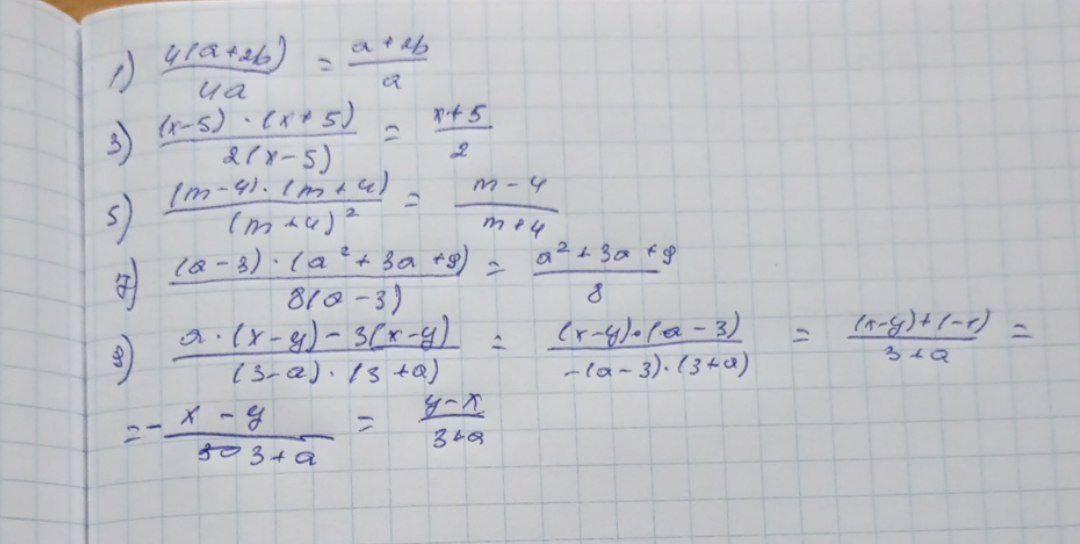 1) 4(a+2b)/4a = a+2b/a
3) (x-5)·(x+5)/2(x-5) = x+5/2
5) (m-4)·(m+4)/(m+4)² = m-4/m+4
7) (a-3)·(a²+3a+9)/8(a-3) = a²+3a+9/8
9) a·(x-y)-3(x-y)/(3-a)·(3+a) = (x-y)·(a-3)/-(a-3)·(3+a) = (x-y)+(-1)/3+a =
=- x-y/3+a = y-x/3+a